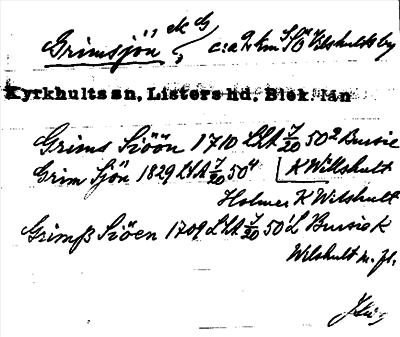 Grimsjön, c:a 2 km SO Vilshults by
Kyrkhults sn, Listers hd, Blek. län
Grims Siöön 1710 LSA 7/20 50² Busie
Grim Sjön 1829 LSA 7/20 50⁴ K Willshult
Holmer K Wilshult
Grimß Siöen 1709 LSA 7/20 50¹ L Busie K
Wilshult m. fl.